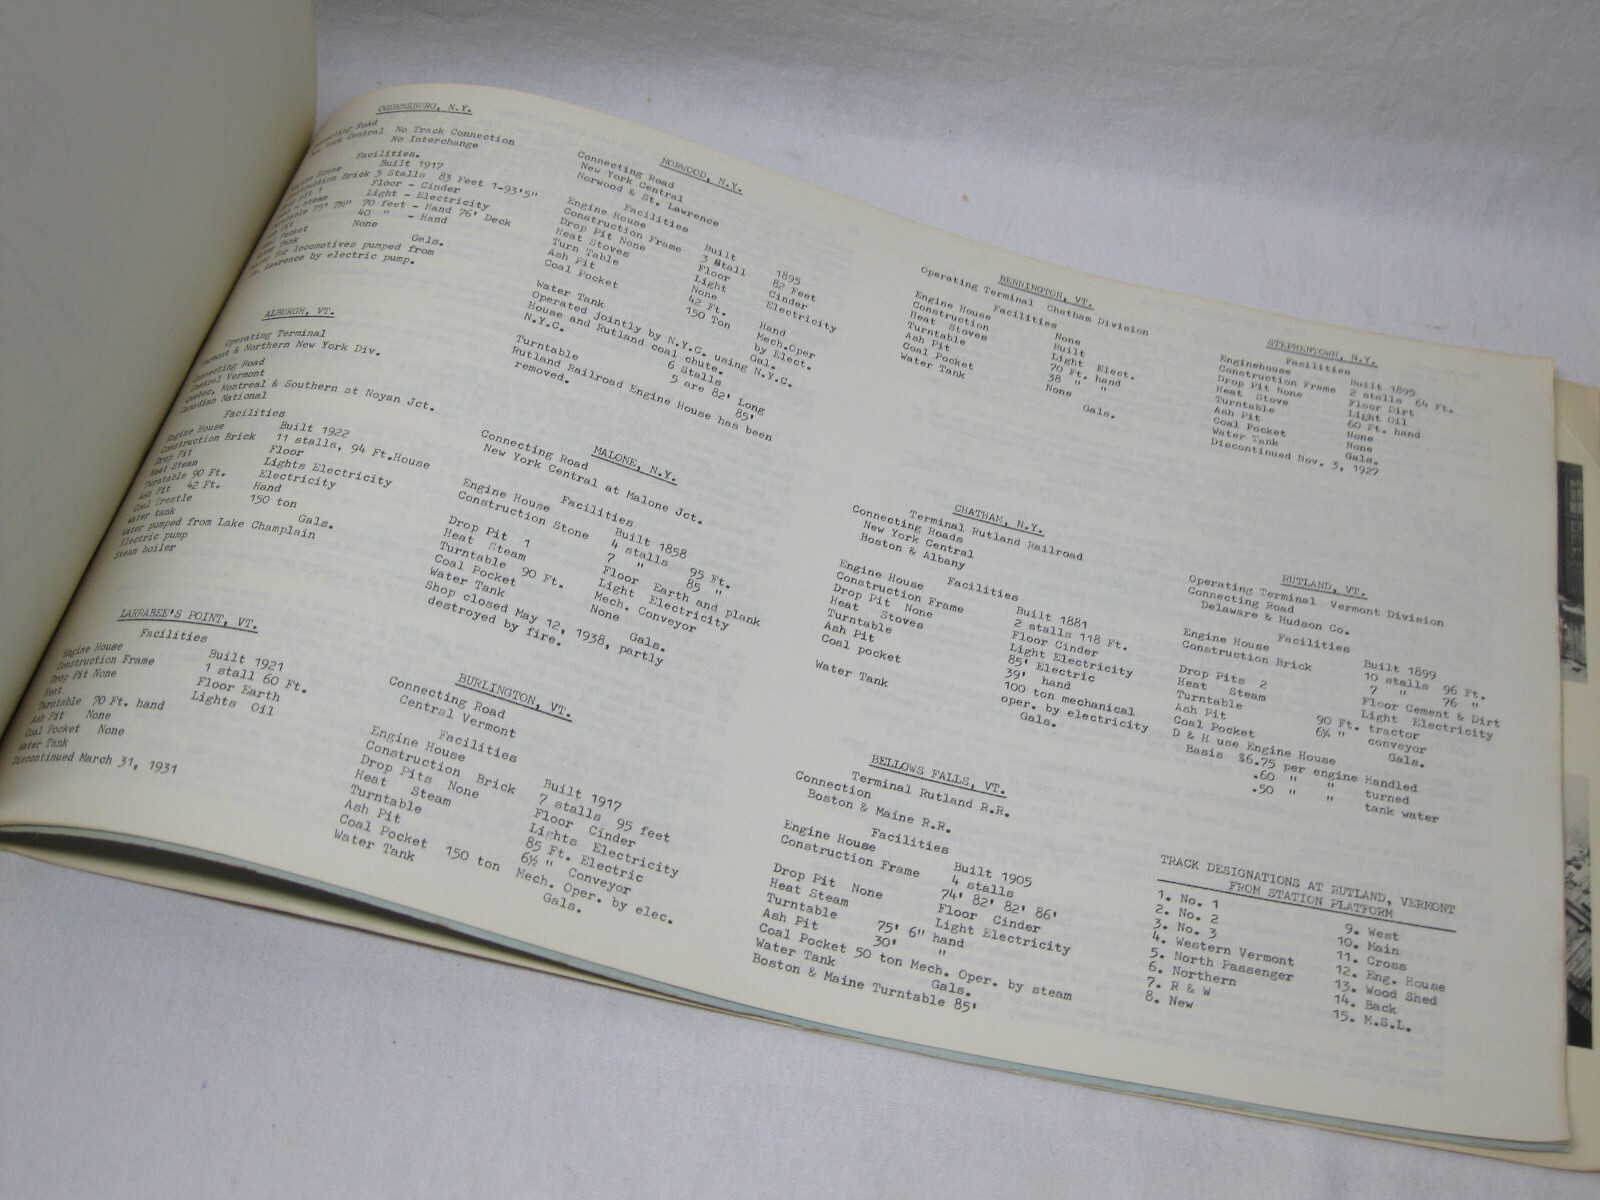 OGDENSBURG, N.Y.
Connecting Road No Track Connection
New York Central No Interchange
Facilities.
Engine House Built 1917
Construction Brick 5 Stalls 83 Feet 1-93'5"
Pit 1 Floor - Cinder
- Steam Light - Electricity
Turntable 75' 70 feet - Hand 76' Deck
Pit 40 " - Hand
Pocket None
Water Tank Gals.
Water for locomotives pumped from
St. Lawrence by electric pump.
ALBURGH, VT.
Operating Terminal
Vermont & Northern New York Div.
Connecting Road
Central Vermont
Quebec, Montreal & Southern at Noyan Jct.
Canadian National
Facilities
Engine House Built 1922
Construction Brick 11 stalls, 94 Ft.House
Drop Pit Floor
Heat Steam Lights Electricity
Turntable 90 Ft. Electricity
Ash Pit 42 Ft. Hand
Coal Trestle 150 ton
Water tank Gals.
Water pumped from Lake Champlain
Electric pump
Steam boiler
LARRABEE'S POINT, VT.
Facilities
Engine House Built 1921
Construction Frame 1 stall 60 Ft.
Drop Pit None Floor Earth
Heat Lights Oil
Turntable 70 Ft. hand
Ash Pit None
Coal Pocket None
Water Tank
Discontinued March 31, 1931
NORWOOD, N.Y.
Connecting Road
New York Central
Norwood & St. Lawrence
Facilities
Engine House Built 1895
Construction Frame 3 Stall 82 Feet
Drop Pit None Floor Cinder
Heat Stoves Light Electricity
Turn Table None
Ash Pit 42 Ft. Hand
Coal Pocket 150 Ton Mech.Oper
by Elect.
Water Tank Gal.
Operated jointly by N.Y.C. using N.Y.C.
House and Rutland coal chute.
N.Y.C. 6 Stalls
5 are 82' Long
Turntable 85'
Rutland Railroad Engine House has been
removed.
MALONE, N.Y.
Connecting Road
New York Central at Malone Jct.
Facilities
Engine House Built 1858
Construction Stone 4 stalls 95 Ft.
7 " 85 "
Drop Pit 1 Floor Earth and plank
Heat Steam Light Electricity
Turntable 90 Ft. Mech. Conveyor
Coal Pocket None
Water Tank Gals.
Shop closed May 12, 1938, partly
destroyed by fire.
BURLINGTON, VT.
Connecting Road
Central Vermont
Facilities
Engine House Built 1917
Construction Brick 7 stalls 95 feet
Drop Pits None Floor Cinder
Heat Steam Lights Electricity
Turntable 85 Ft. Electric
Ash Pit 6½ " Conveyor
Coal Pocket 150 ton Mech. Oper. by elec.
Water Tank Gals.
BENNINGTON, VT.
Operating Terminal Chatham Division
Facilities
Engine House None
Construction Built
Heat Stoves Light Elect.
Turntable 70 Ft. hand
Ash Pit 38 " "
Coal Pocket None
Water Tank Gals.
CHATHAM, N.Y.
Terminal Rutland Railroad
Connecting Roads
New York Central
Boston & Albany
Facilities
Engine House Built 1881
Construction Frame 2 stalls 118 Ft.
Drop Pit None Floor Cinder
Heat Stoves Light Electricity
Turntable 85' Electric
Ash Pit 39' hand
Coal pocket 100 ton mechanical
oper. by electricity
Water Tank Gals.
BELLOWS FALLS, VT.
Terminal Rutland R.R.
Connection
Boston & Maine R.R.
Facilities
Engine House Built 1905
Construction Frame 4 stalls
74' 82' 82' 86'
Drop Pit None Floor Cinder
Heat Steam Light Electricity
Turntable 75' 6" hand
Ash Pit 30' "
Coal Pocket 50 ton Mech. Oper. by steam
Water Tank Gals.
Boston & Maine Turntable 85'
STEPHENTOWN, N.Y.
Facilities
Enginehouse Built 1895
Construction Frame 2 stalls 64 Ft.
Drop Pit None Floor Dirt
Heat Stove Light Oil
Turntable 60 Ft. hand
Ash Pit None
Coal Pocket None
Water Tank Gals.
Discontinued Nov. 3, 1927
RUTLAND, VT.
Operating Terminal Vermont Division
Connecting Road
Delaware & Hudson Co.
Facilities
Engine House Built 1899
Construction Brick 10 stalls 96 Ft.
7 " 76 "
Drop Pits 2 Floor Cement & Dirt
Heat Steam Light Electricity
Turntable 90 Ft. tractor
Ash Pit 6½ " conveyor
Coal Pocket Gals.
D & H use Engine House
Basis $6.75 per engine Handled
.60 " " turned
.50 " " tank water
TRACK DESIGNATIONS AT RUTLAND, VERMONT
FROM STATION PLATFORM
1. No. 1
2. No. 2
3. No. 3
4. Western Vermont
5. North Passenger
6. Northern
7. R & W
8. New
9. West
10. Main
11. Cross
12. Eng. House
13. Wood Shed
14. Back
15. M.S.L.